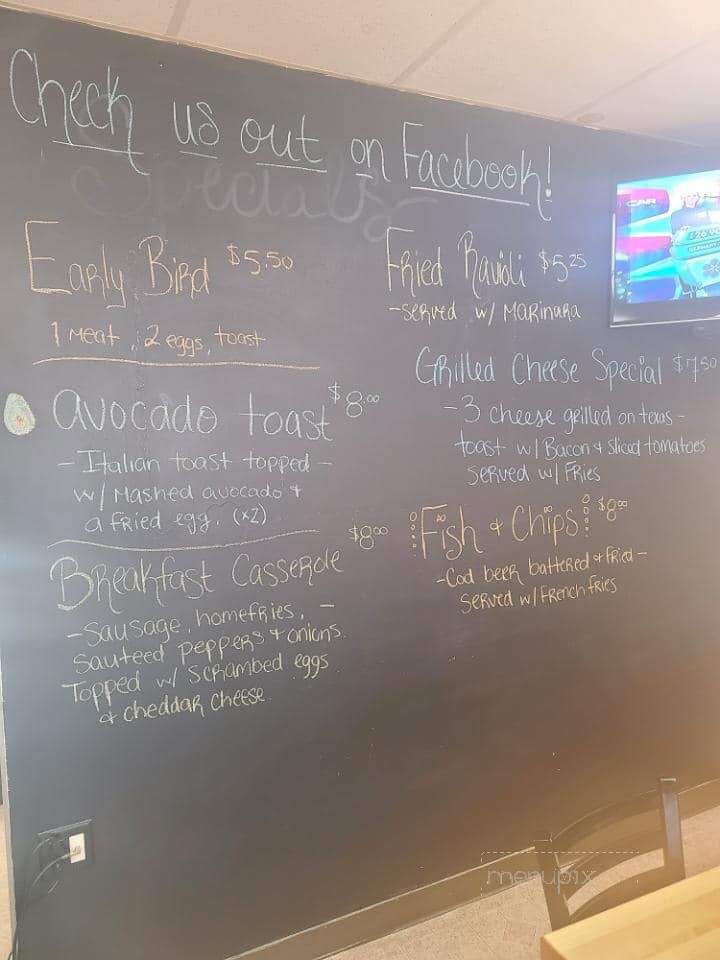 Check us out on Facebook!
Specials
Early Bird $5.50
1 Meat, 2 eggs, toast
avocado toast $8.00
- Italian toast topped -
w/ Mashed avocado &
a fried egg. (x2)
Breakfast Casserole $8.00
- Sausage, homefries, -
sauteed peppers & onions
Topped w/ Scrambed eggs
& cheddar cheese
Fried Ravioli $5.25
- served w/ Marinara
Grilled Cheese Special $7.50
- 3 cheese grilled on texas -
toast w/ Bacon & Sliced tomatoes
served w/ Fries
Fish & Chips $8.00
- Cod beer battered & fried -
served w/ French fries
CAR
menupix